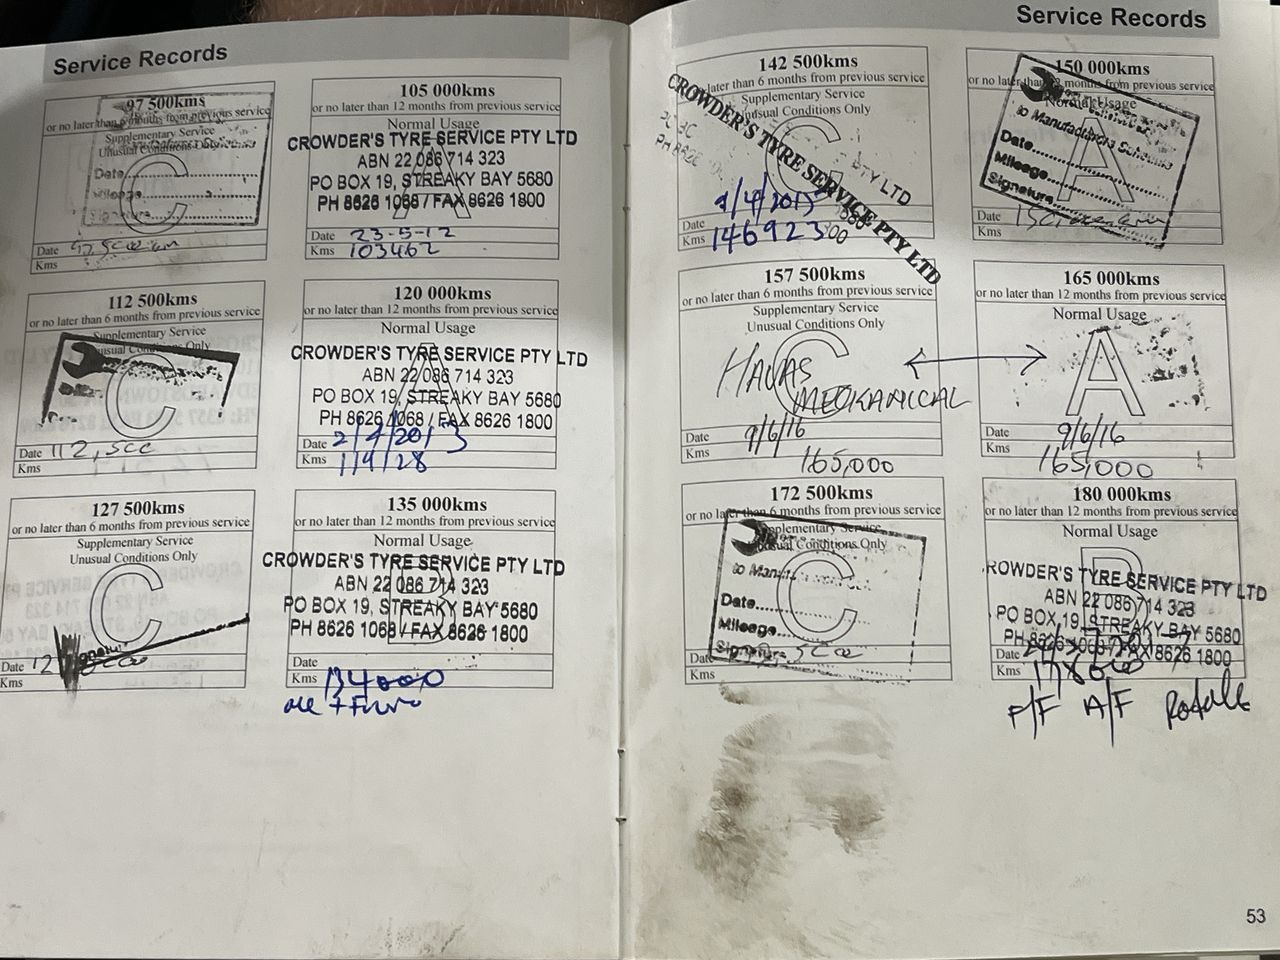 Service Records
97 500kms
or no later than 6 months from previous service
Supplementary Service
Unusual Conditions Only
Date
Mileage
Signature
C
Date
Kms
105 000kms
or no later than 12 months from previous service
Normal Usage
CROWDER'S TYRE SERVICE PTY LTD
ABN 22 086 714 323
PO BOX 19, STREAKY BAY 5680
PH 8626 1068 / FAX 8626 1800
A
Date 23-5-12
Kms 103462
112 500kms
or no later than 6 months from previous service
Supplementary Service
Unusual Conditions Only
C
Date 112,500
Kms
120 000kms
or no later than 12 months from previous service
Normal Usage
CROWDER'S TYRE SERVICE PTY LTD
ABN 22 086 714 323
PO BOX 19, STREAKY BAY 5680
PH 8626 1068 / FAX 8626 1800
A
Date 2/4/2013
Kms 119128
127 500kms
or no later than 6 months from previous service
Supplementary Service
Unusual Conditions Only
C
Signature
Date
Kms
135 000kms
or no later than 12 months from previous service
Normal Usage
CROWDER'S TYRE SERVICE PTY LTD
ABN 22 086 714 323
PO BOX 19, STREAKY BAY 5680
PH 8626 1068 / FAX 8626 1800
Date
Kms 134000
Service Records
142 500kms
or no later than 6 months from previous service
Supplementary Service
Unusual Conditions Only
CROWDER'S TYRE SERVICE PTY LTD
C
PTY LTD
Date
Kms 146923
150 000kms
or no later than 12 months from previous service
Normal Usage
to Manufacturers Schedule
Date
Mileage
Signature
A
Date
Kms
157 500kms
or no later than 6 months from previous service
Supplementary Service
Unusual Conditions Only
C
HAWAS
MECKANICCAL
Date 9/6/16
Kms 165,000
165 000kms
or no later than 12 months from previous service
Normal Usage
A
Date 9/6/16
Kms 165,000
172 500kms
or no later than 6 months from previous service
Supplementary Service
Unusual Conditions Only
to
Date
Mileage
Signature
C
Date
Kms
180 000kms
or no later than 12 months from previous service
Normal Usage
B
ROWDER'S TYRE SERVICE PTY LTD
ABN 22 086 714 323
PO BOX 19, STREAKY BAY 5680
PH 8626 1068 / FAX 8626 1800
Date
Kms
P/F A/F Rotate
53